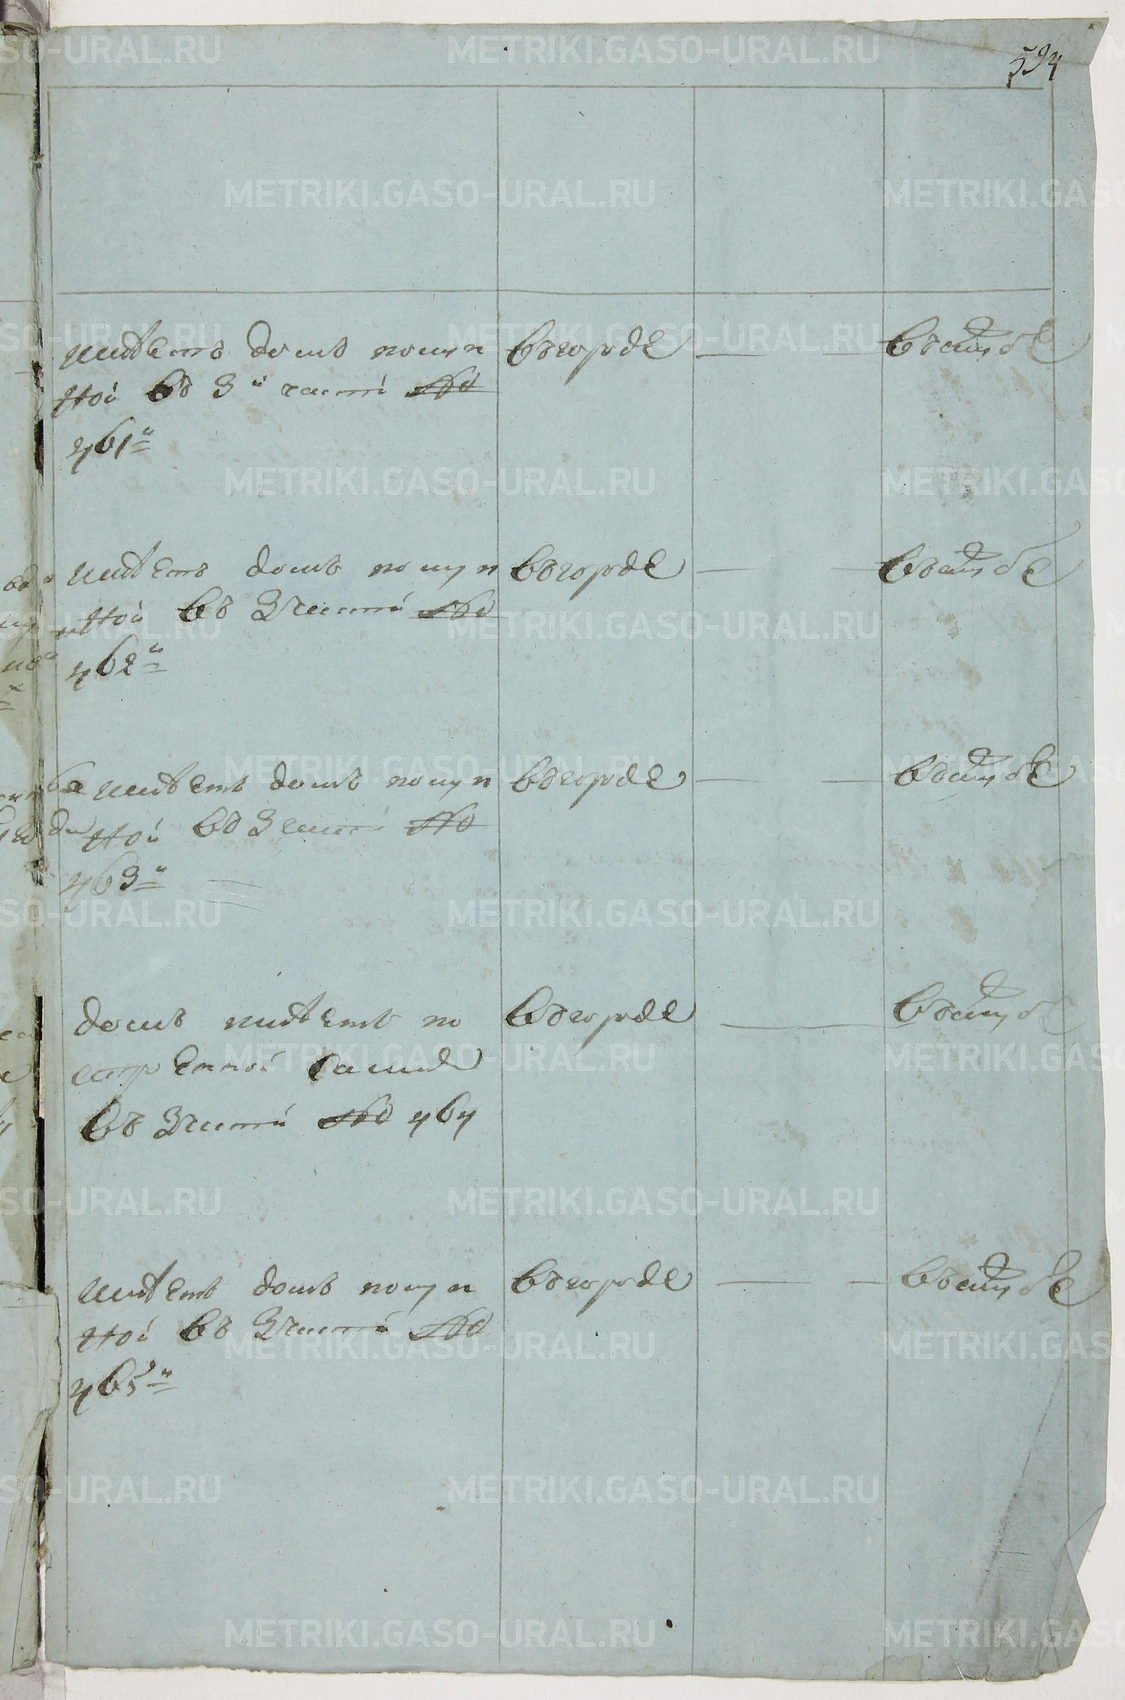 594
имѣетъ домъ покуп
ной въ 3й части №
461й
въ городе
въ службе
имѣетъ домъ покуп
ной въ 3 части №
462й
въ городе
въ службе
имѣетъ домъ покуп
ной въ 3 части №
463й
въ городе
въ службе
домъ имѣетъ по
строенной самимъ
въ 3 части № 464
въ городе
въ службе
имѣетъ домъ покуп
ной въ 3 части №
465й
въ городе
въ службе
METRIKI.GASO-URAL.RU